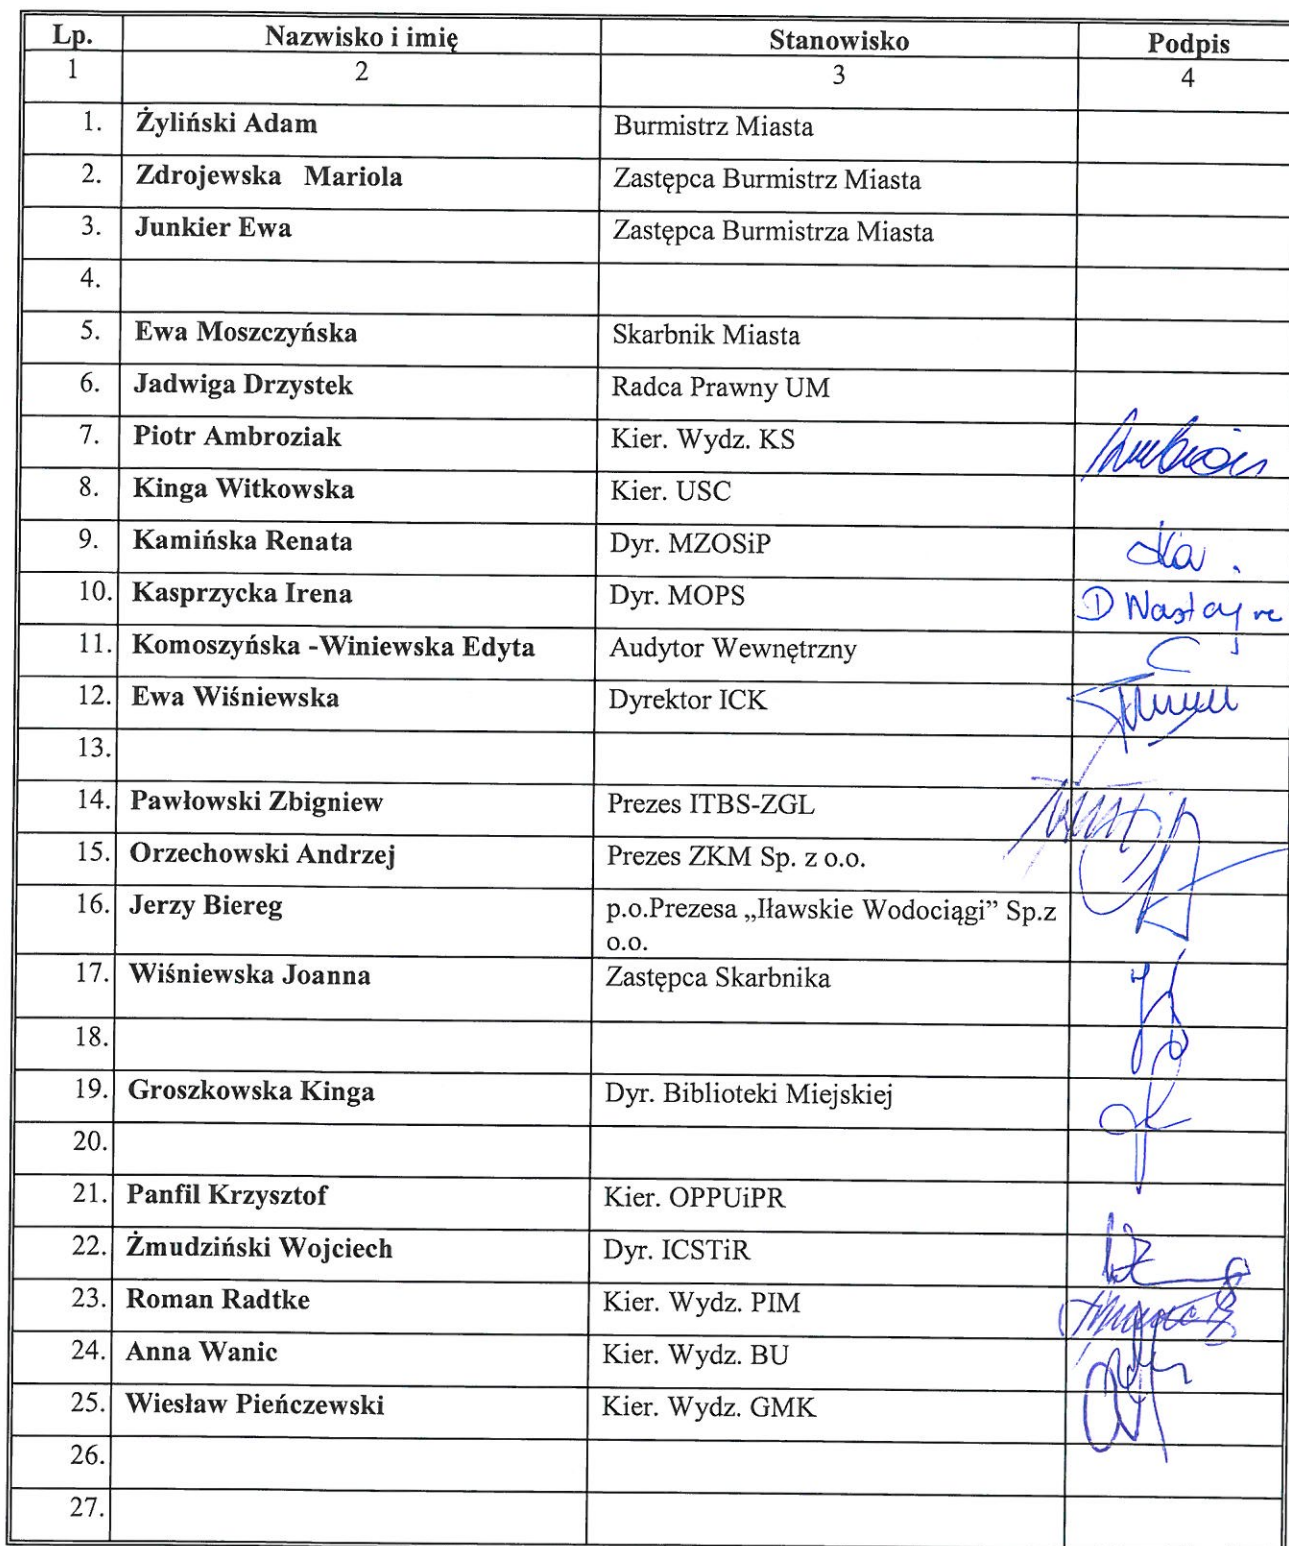 Lp. Nazwisko i imię Stanowisko Podpis
1 2 3 4
1. Żyliński Adam Burmistrz Miasta
2. Zdrojewska Mariola Zastępca Burmistrz Miasta
3. Junkier Ewa Zastępca Burmistrza Miasta
4.
5. Ewa Moszczyńska Skarbnik Miasta
6. Jadwiga Drzystek Radca Prawny UM
7. Piotr Ambroziak Kier. Wydz. KS
8. Kinga Witkowska Kier. USC
9. Kamińska Renata Dyr. MZOSiP
10. Kasprzycka Irena Dyr. MOPS
11. Komoszyńska -Winiewska Edyta Audytor Wewnętrzny
12. Ewa Wiśniewska Dyrektor ICK
13.
14. Pawłowski Zbigniew Prezes ITBS-ZGL
15. Orzechowski Andrzej Prezes ZKM Sp. z o.o.
16. Jerzy Biereg p.o.Prezesa „Iławskie Wodociągi” Sp.z
o.o.
17. Wiśniewska Joanna Zastępca Skarbnika
18.
19. Groszkowska Kinga Dyr. Biblioteki Miejskiej
20.
21. Panfil Krzysztof Kier. OPPUiPR
22. Żmudziński Wojciech Dyr. ICSTiR
23. Roman Radtke Kier. Wydz. PIM
24. Anna Wanic Kier. Wydz. BU
25. Wiesław Pieńczewski Kier. Wydz. GMK
26.
27.